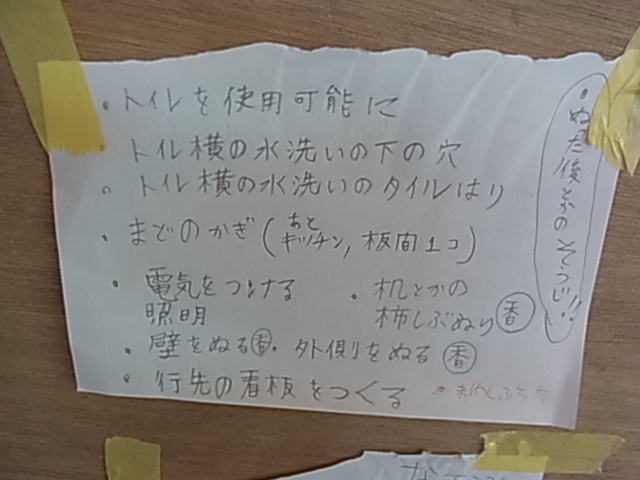 ・トイレを使用可能に
トイレ横の水洗いの下の穴
・トイレ横の水洗いのタイルはり
・まどのかぎ(あとキッチン,板間1コ)
・電気をつける
照明
・机とかの
柿しぶぬり 香
・壁をぬる 香 ・外側りをぬる 香
・行先の看板をつくる
・ぬった後とかのそうじ!!